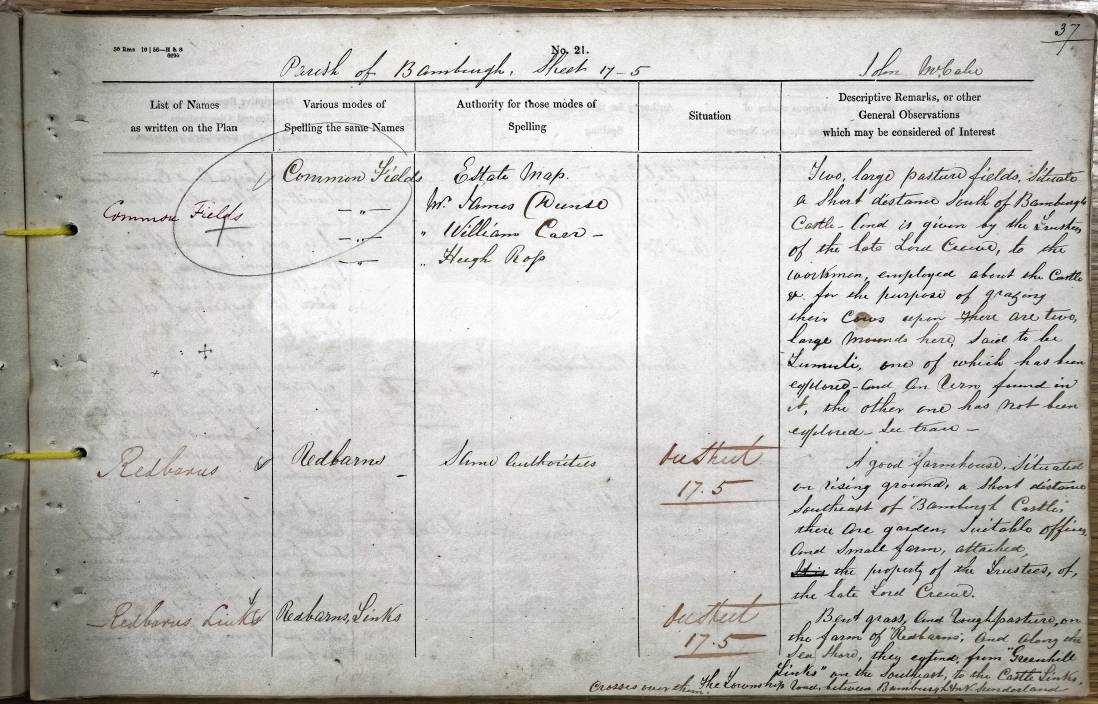 37
50 Rms 10 | 56—H & S
6295
No. 21.
Parish of Bamburgh. Sheet 17-5
John McCabe
List of Names
as written on the Plan
Various modes of
Spelling the same Names
Authority for those modes of
Spelling
Situation
Descriptive Remarks, or other
General Observations
which may be considered of Interest
Common Fields
Common Fields
Estate Map.
— „ —
Mr. James
— „ —
„ William Carr —
— „ —
„ Hugh Ross
Two, large pasture fields, Situate
a Short distance South of Bamburgh
Castle - And is given by the Trustees
of the late Lord Crewe, to the
workmen, employed about the Castle
&c for the purpose of grazing
their Cows upon - There are two,
large Mounds here, Said to be
Tumuli, one of which has been
explored - And An Urn found in
it, the other one has not been
explored - See trace -
Redbarns
Redbarns
Same Authorities
On Sheet
17.5
A good farmhouse, Situated
on rising ground, a Short distance
Southeast of Bamburgh Castle,
there Are garden, Suitable offices,
And Small farm, attached,
It is the property of the Trustees, of,
the late Lord Crewe.
Redbarns Links
Redbarns, Links
On Sheet
17.5
Bent grass, And Rough pasture, on
the farm of "Redbarns", And Along the
Sea Shore, they extend, from "Greenhill
Links" on the Southeast, to the Castle Links"
Crosses over them. The Township Road, between Bamburgh & N. Sunderland